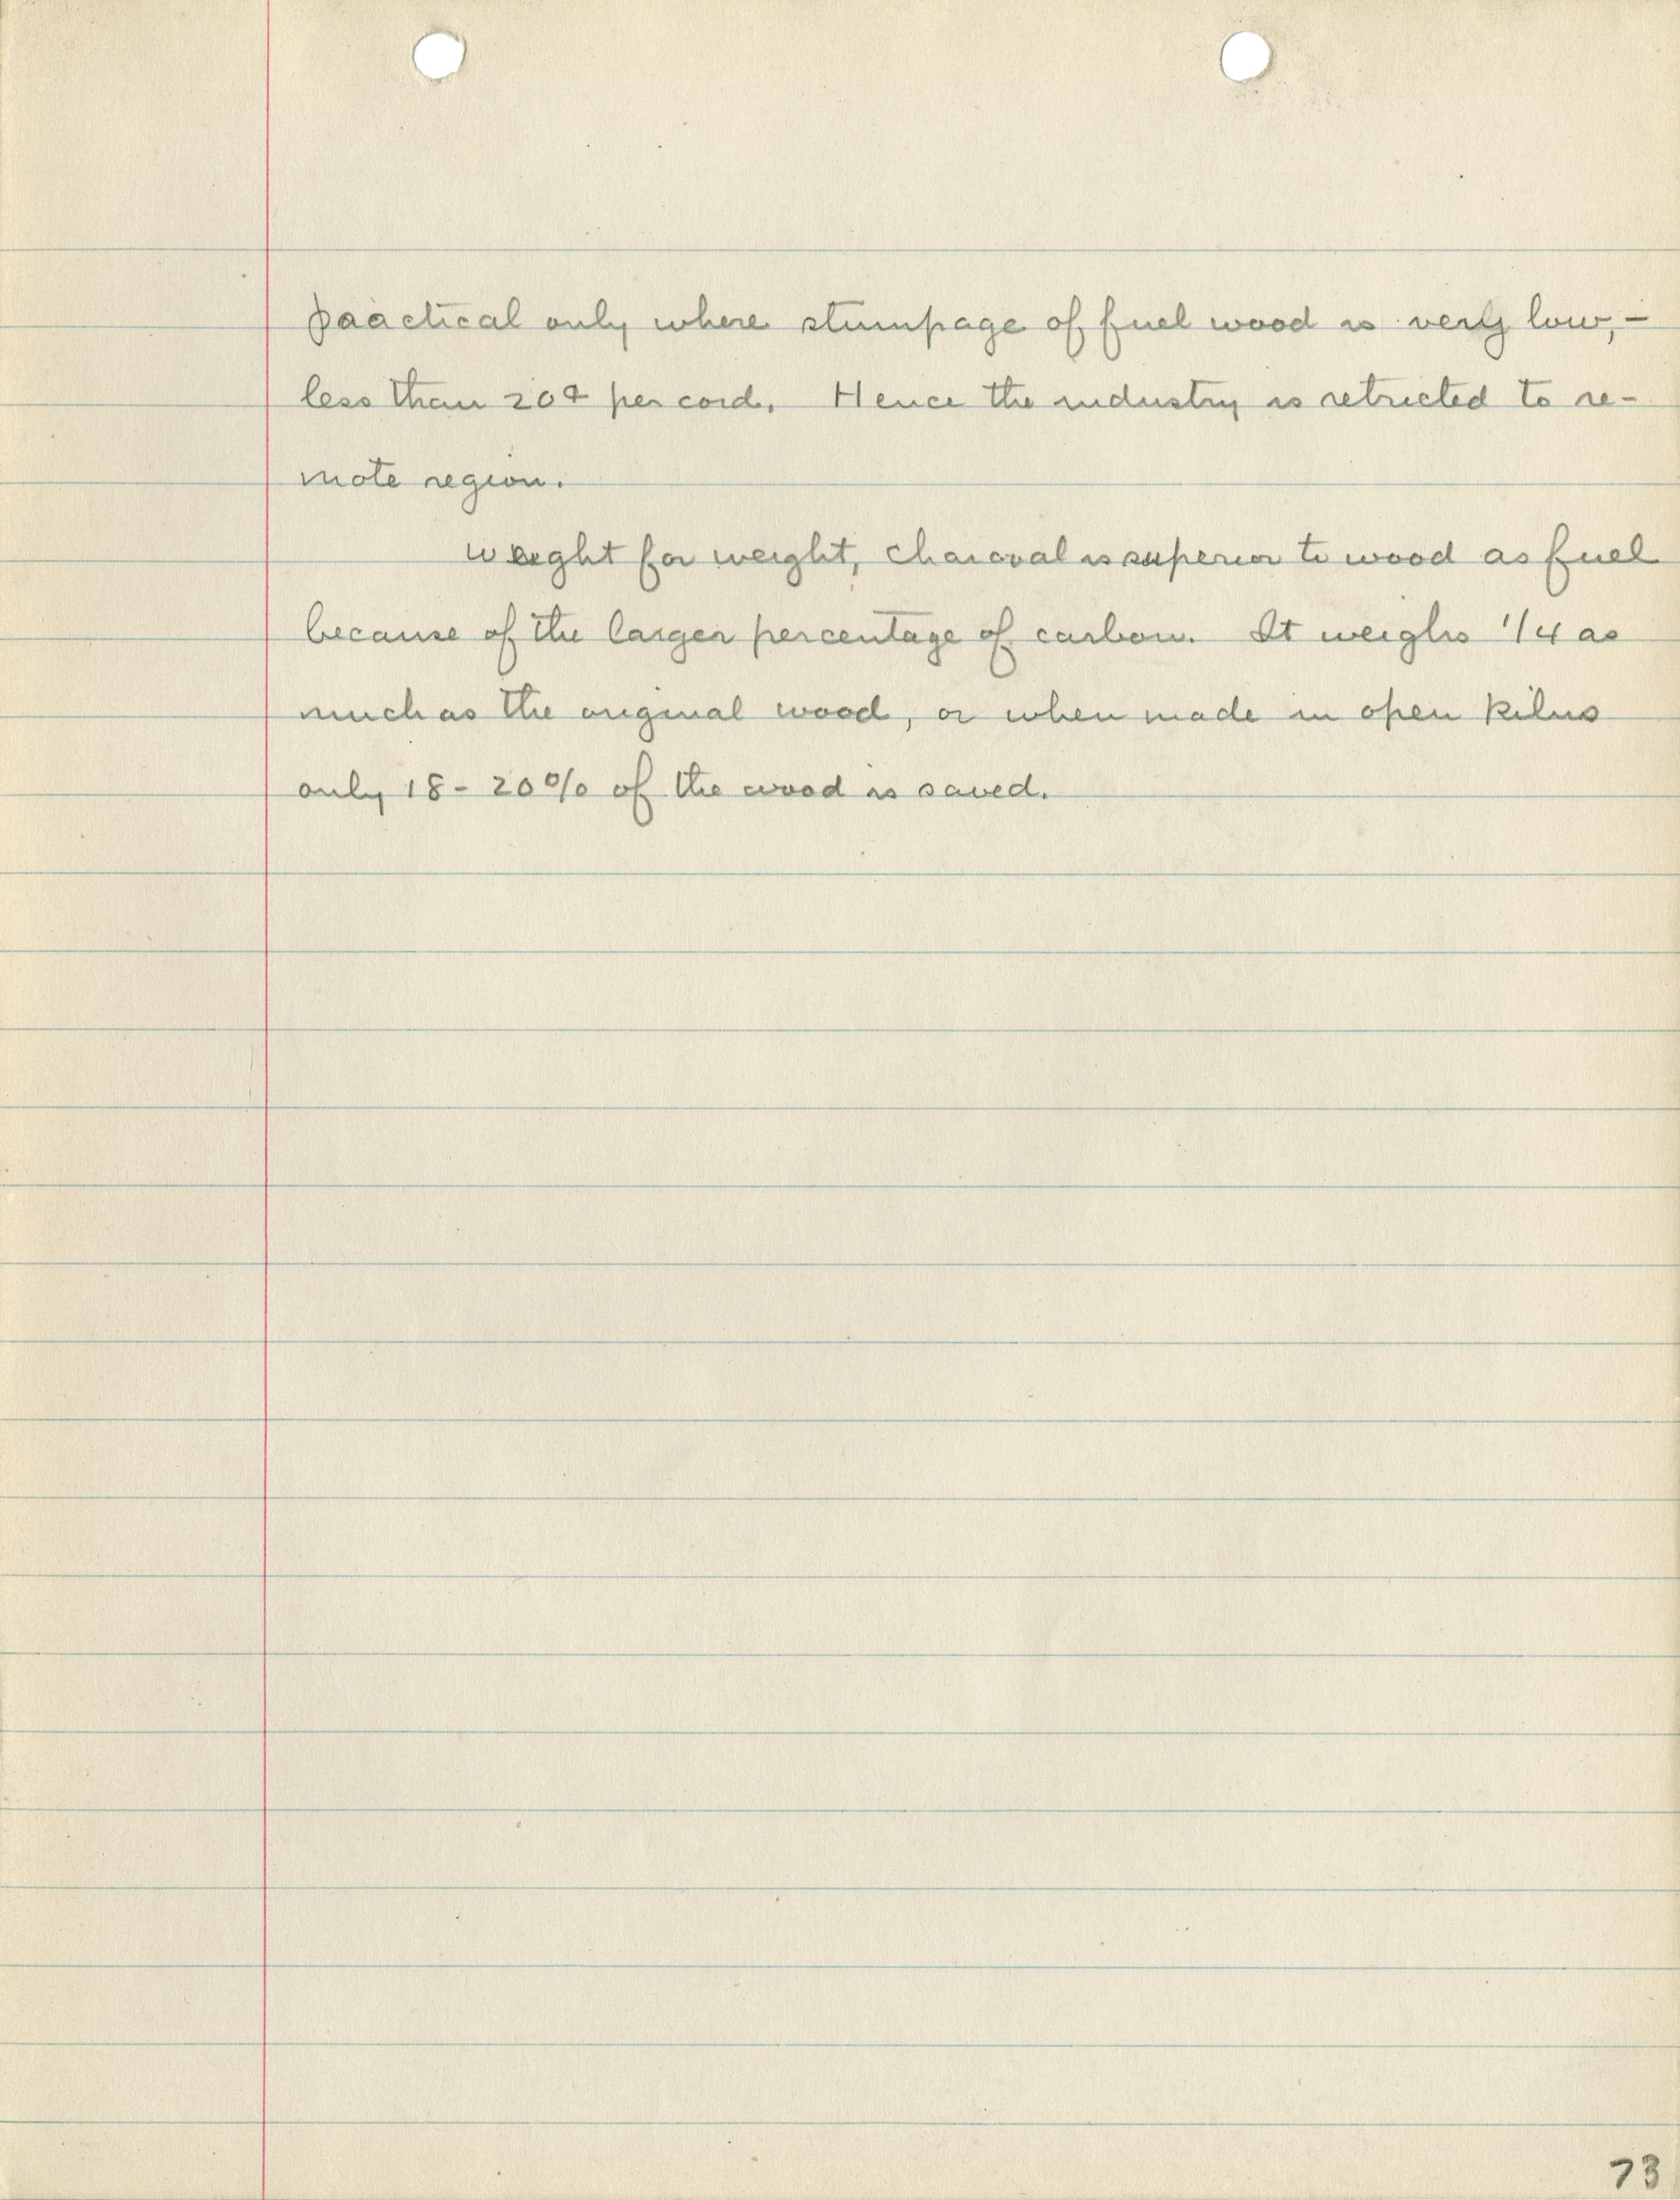 paactical only where stumpage of fuel wood is very low, -
less than 20¢ per cord. Hence the industry is retricted to re-
mote region.
Weight for weight, charcoal is superior to wood as fuel
because of the larger percentage of carbon. It weighs 1/4 as
much as the original wood, or when made in open kilns
only 18 - 20% of the wood is saved.
73